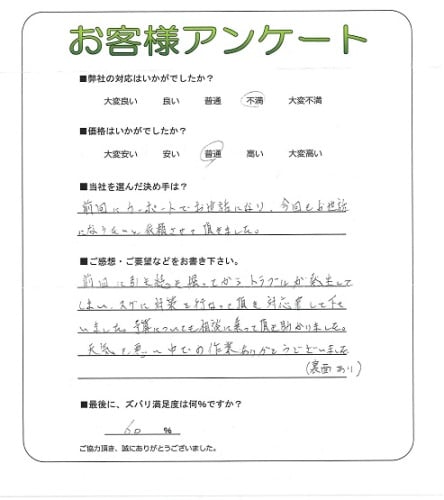 お客様アンケート
■弊社の対応はいかがでしたか？
大変良い 良い 普通 不満 大変不満
■価格はいかがでしたか？
大変安い 安い 普通 高い 大変高い
■当社を選んだ決め手は？
前回にカーポートでお世話になり、今回もお世話
になりたいと依頼させて頂きました。
■ご感想・ご要望などをお書き下さい。
前回に引き続き
トラブルが発生して
しまい、スグに対策を行なって頂き対応して下さ
いました。予算についても相談に乗って頂き助かりました。
天気の悪い中での作業ありがとうございました
(裏面あり)
■最後に、ズバリ満足度は何％ですか？
60 %
ご協力頂き、誠にありがとうございました。